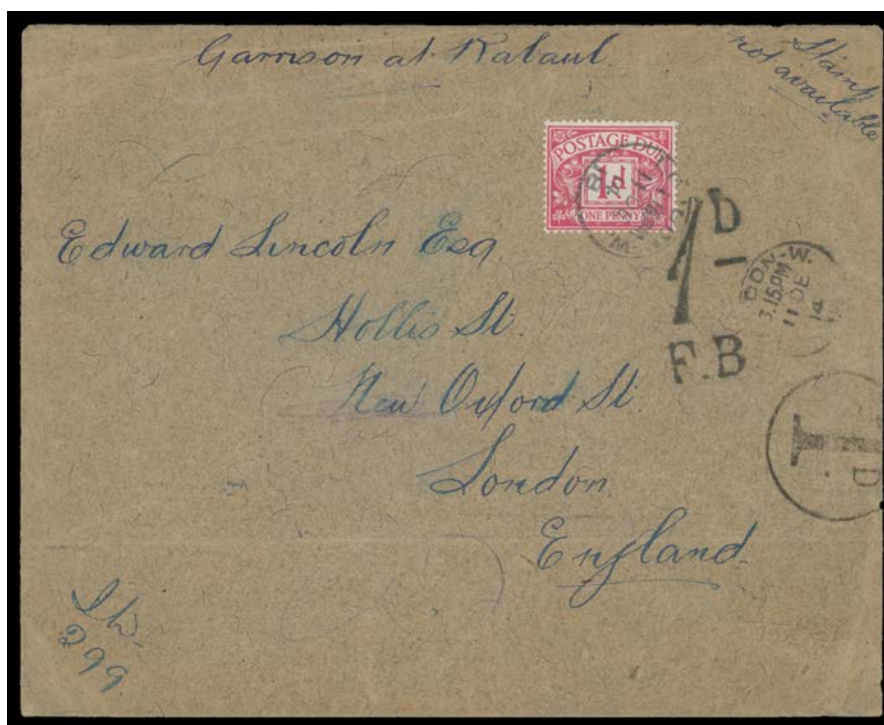 Garrison at Rabaul.
Stamp
not available
POSTAGE DUE
1d
ONE PENNY
1D
F.B
DON.W.
3.15PM
11 DE
14
Edward Lincoln Esq.
Hollis St.
New Oxford St.
London
England.
T
D
299